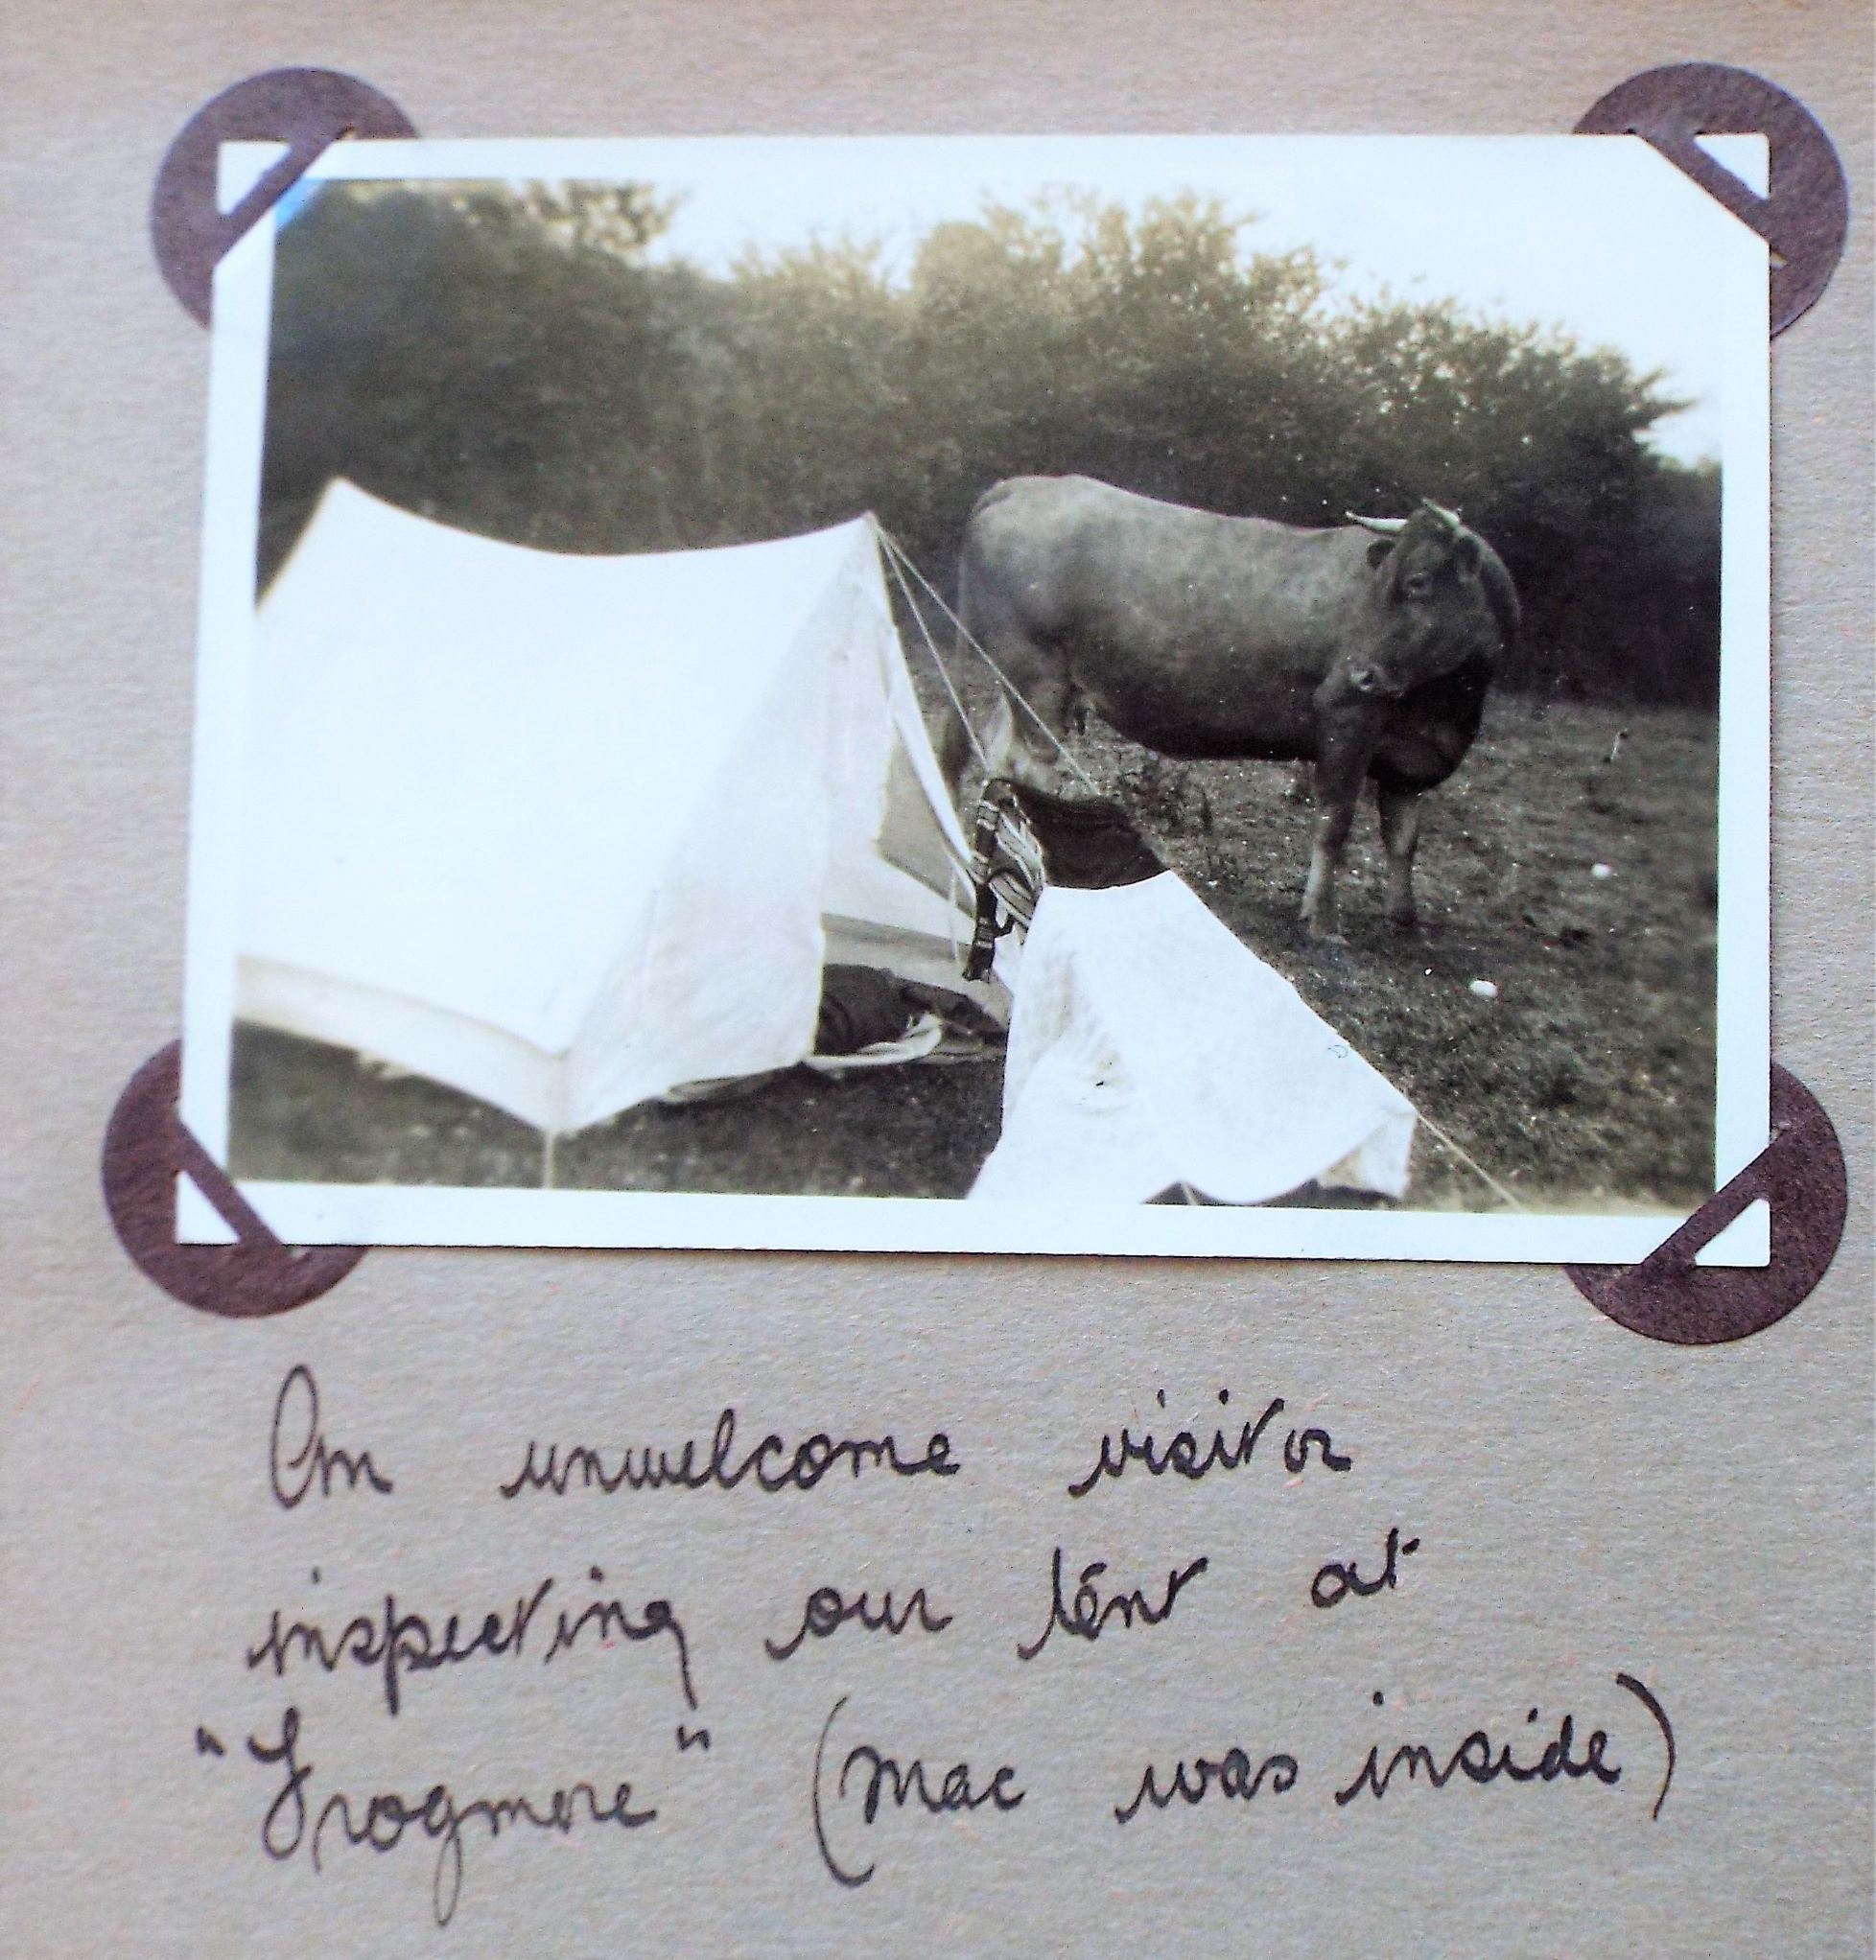 An unwelcome visitor
inspecting our tent at
"Frogmore" (Mac was inside)